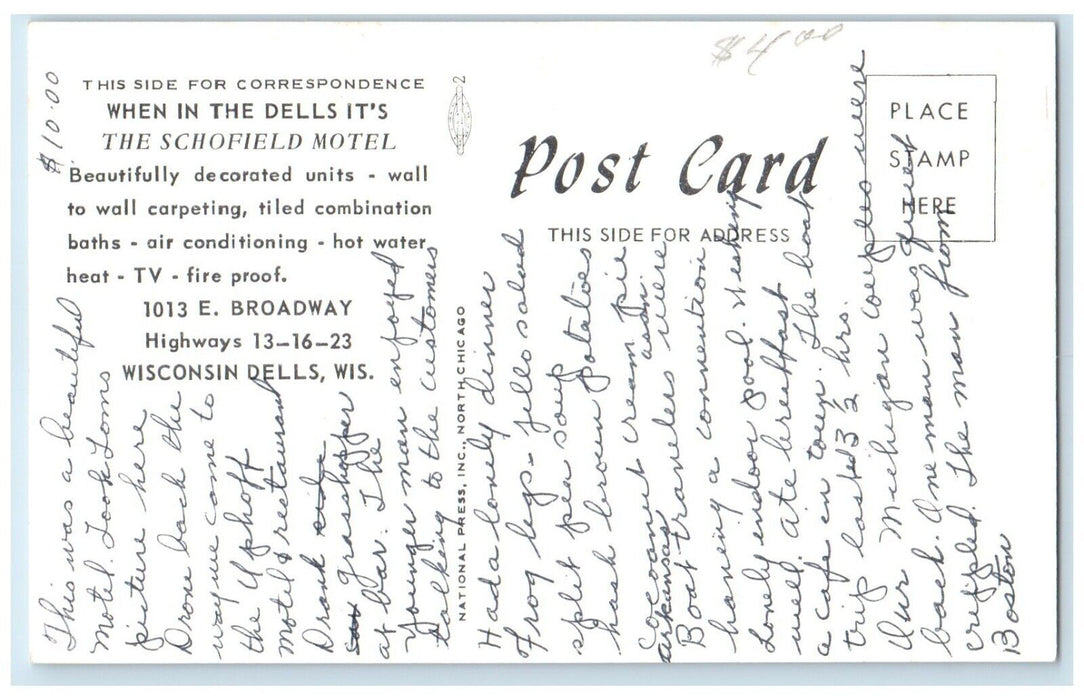 $4.00
$10.00
THIS SIDE FOR CORRESPONDENCE
WHEN IN THE DELLS IT'S
THE SCHOFIELD MOTEL
Beautifully decorated units - wall
to wall carpeting, tiled combination
baths - air conditioning - hot water
heat - TV - fire proof.
1013 E. BROADWAY
Highways 13-16-23
WISCONSIN DELLS, WIS.
NATIONAL PRESS, INC., NORTH CHICAGO
2
Post Card
THIS SIDE FOR ADDRESS
PLACE
STAMP
HERE
This was a beautiful
motel. Took Toms
picture here
Drove back the
way we came to
the Uphoff
motel & restaurant
Drank
grasshopper
at bar. The
younger man enjoyed
talking to the customers
Had a lovely dinner
Frog legs - jello salad
split pea soup
hash brown potatoes
cocoanut cream pie
arkansas
Boat travelers were
having a convention
Lovely indoor pool.
well. ate breakfast at
a cafe in town. The boat
trip lasted 3 1/2 hrs.
Our Michigan couples were
back. One man was quiet
crippled. The man from
Boston